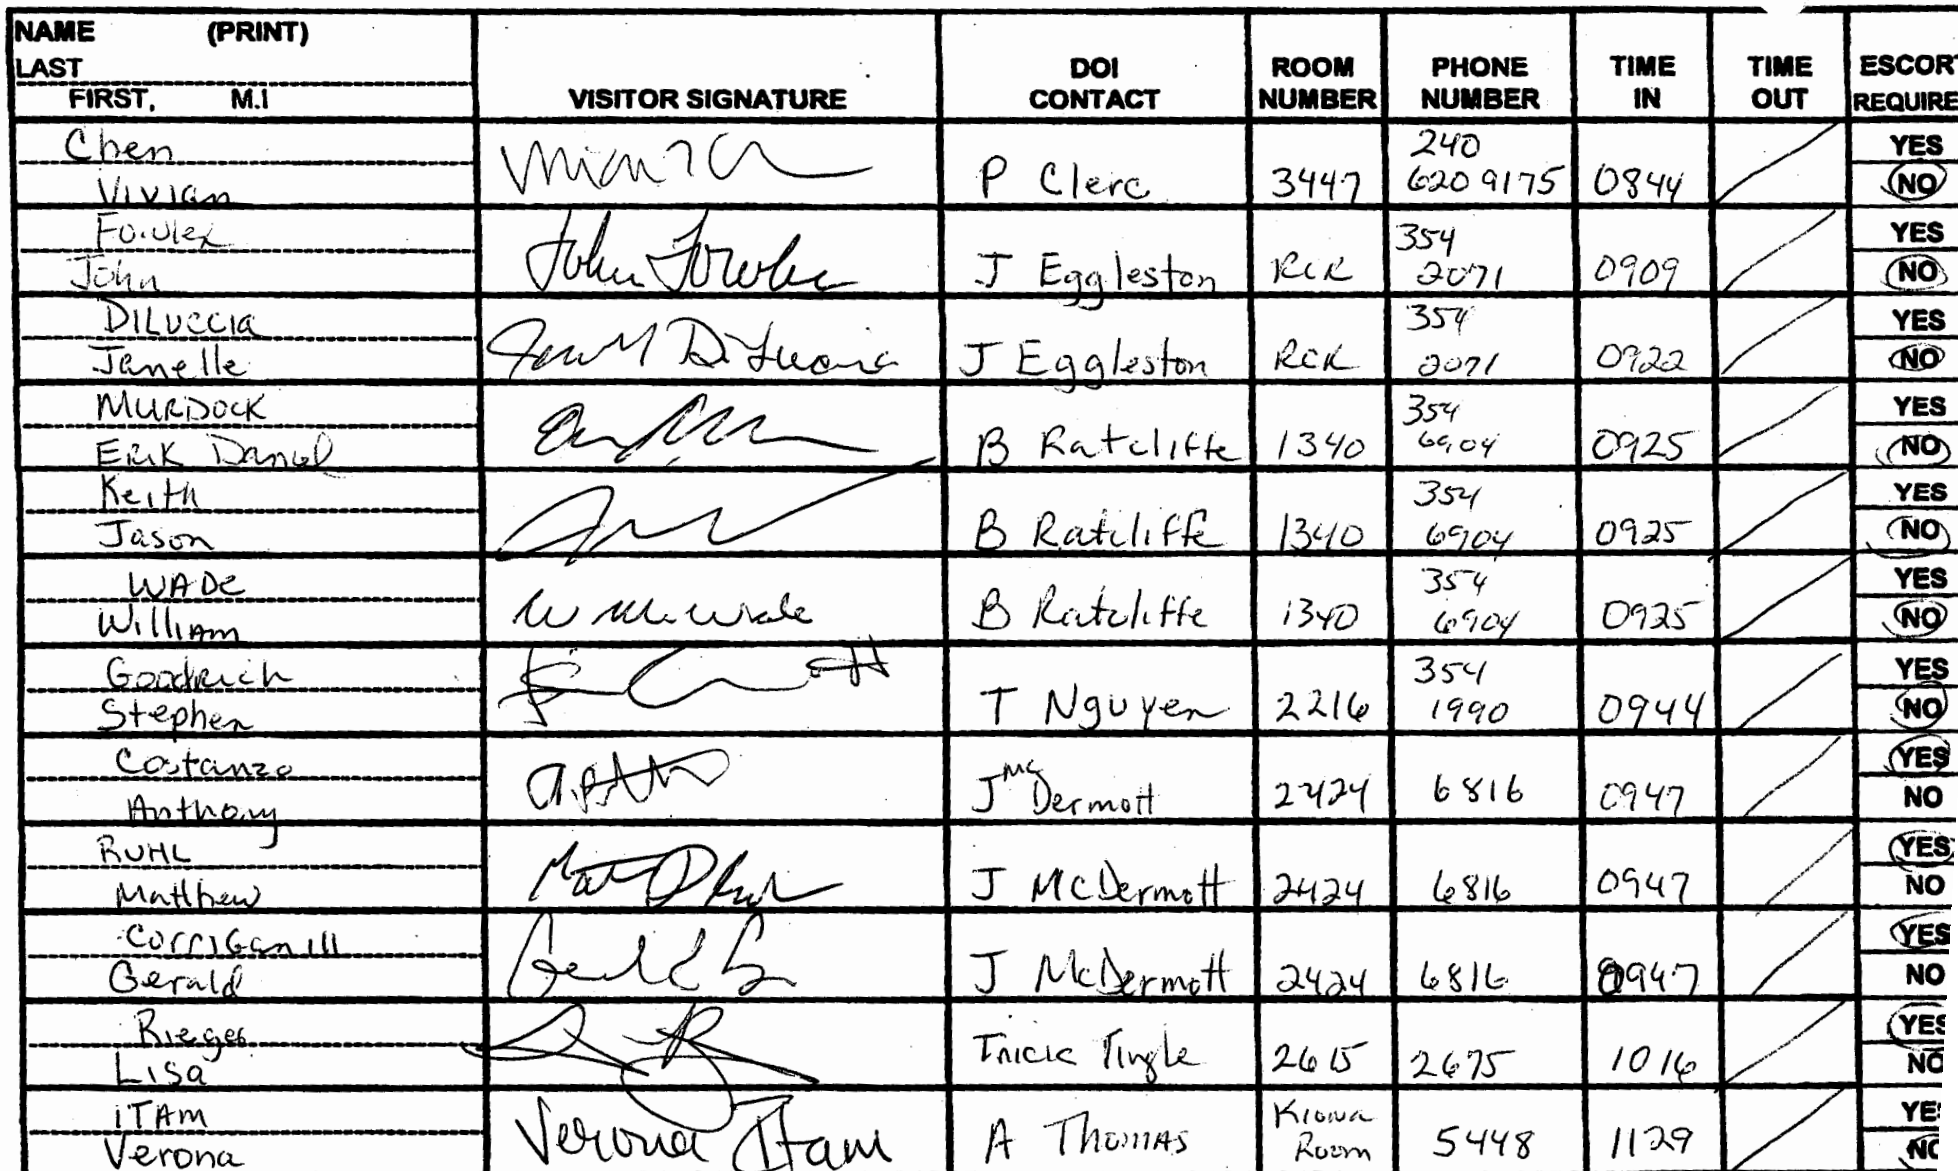 NAME (PRINT)
LAST
FIRST, M.I
VISITOR SIGNATURE
DOI CONTACT
ROOM NUMBER
PHONE NUMBER
TIME IN
TIME OUT
ESCOR
REQUIRE
Chen
Vivian
P Clerc 3447 240 620 9175 0844 YES NO
Fowler
John
John Fowler J Eggleston RCR 354 2071 0909 YES NO
DiLuccia
Janelle
J Eggleston RCR 354 2071 0922 YES NO
MURDOCK
ERIK Daniel
B Ratcliffe 1340 354 6904 0925 YES NO
Keith
Jason
B Ratcliffe 1340 354 6904 0925 YES NO
WADE
William
Wm Wade B Ratcliffe 1340 354 6904 0925 YES NO
Goodrich
Stephen
T Nguyen 2216 354 1990 0944 YES NO
Costanzo
Anthony
J McDermott 2424 6816 0947 YES NO
RUHL
Matthew
J McDermott 2424 6816 0947 YES NO
Corrigan III
Gerald
J McDermott 2424 6816 0947 YES NO
Lisa
Tingle 2615 2675 1016 YES NO
ITAM
Verona
Verona Itam A THOMAS Kiowa Room 5448 1129 YE